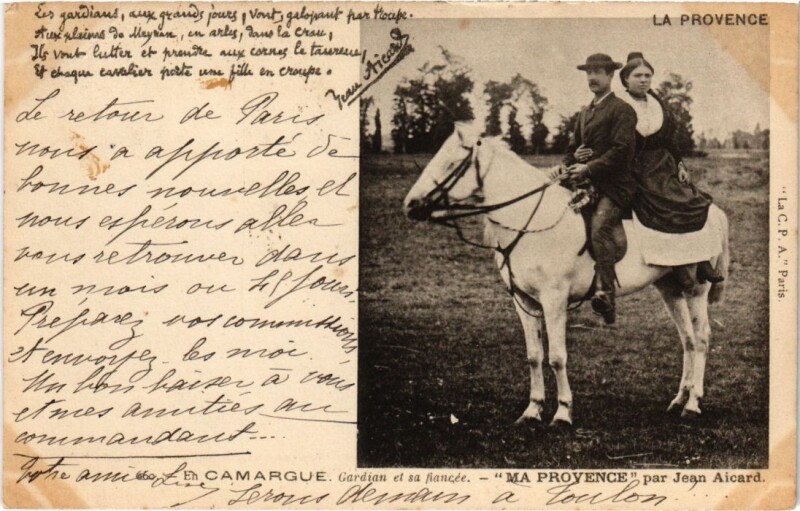 Les gardians, aux grands jours, vont, galopant par troupe.
Aux plaines de Meyran, en arles, dans la crau,
Ils vont lutter et prendre aux cornes le taureau,
Et chaque cavalier porte une fille en croupe.
Jean Aicard
LA PROVENCE
Le retour de Paris
nous a apporté de
bonnes nouvelles et
nous espérons aller
vous retrouver dans
un mois ou 45 jours.
Préparez vos commissions
et envoyez les moi.
Un bon baiser à vous
et mes amitiés au
commandant...
Votre amie
Serons demain à Toulon
"La C. P. A." Paris.
En CAMARGUE. Gardian et sa fiancée. - "MA PROVENCE" par Jean Aicard.